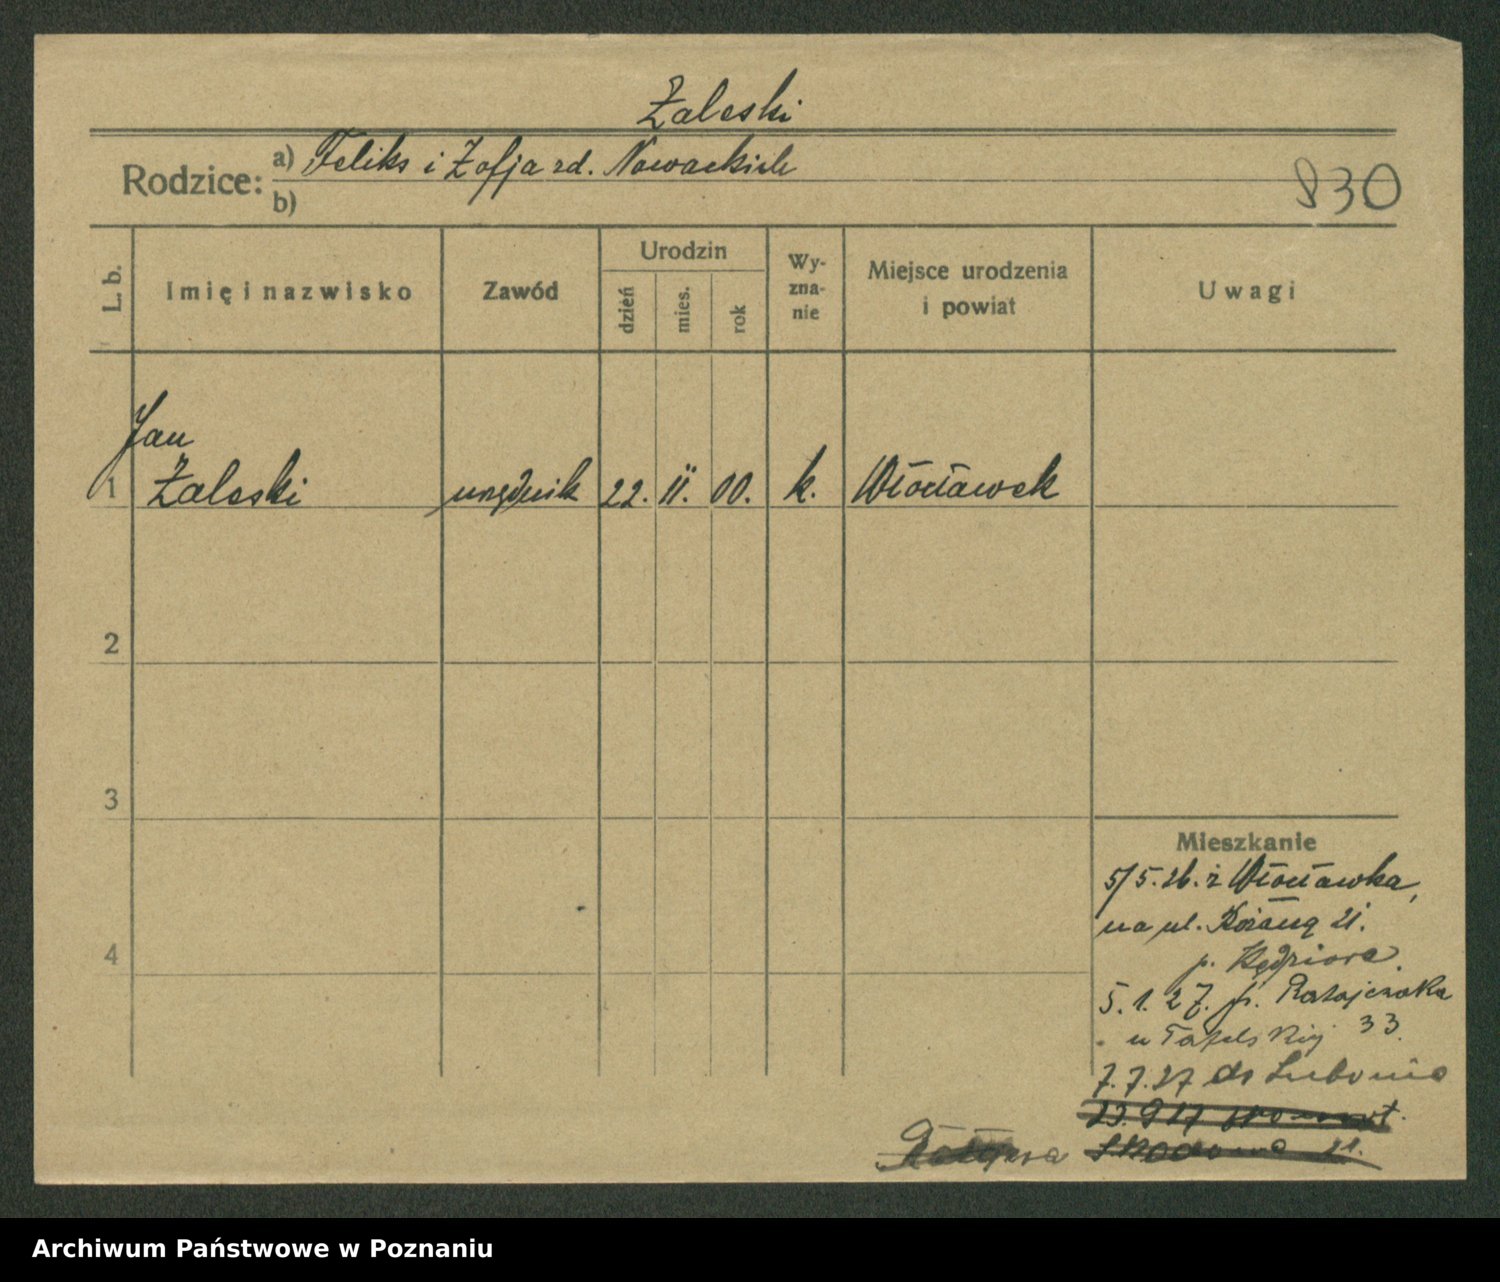 Zaleski
Rodzice: a) Feliks i Zofja zd. Nowackich
b)
830
L. b.
Imię i nazwisko
Zawód
Urodzin
dzień
mies.
rok
Wy-
zna-
nie
Miejsce urodzenia
i powiat
Uwagi
Jan
1 Zaleski urzędnik 22. II. 00. k. Włocławek
2
3
4
Mieszkanie
5/5.26. z Włocławka,
na ul. Różaną 21.
p. Kędziora
5.1.27. fr. Ratajczaka
33
7.7.27 do Lubonia
23.9 27
21.
Archiwum Państwowe w Poznaniu